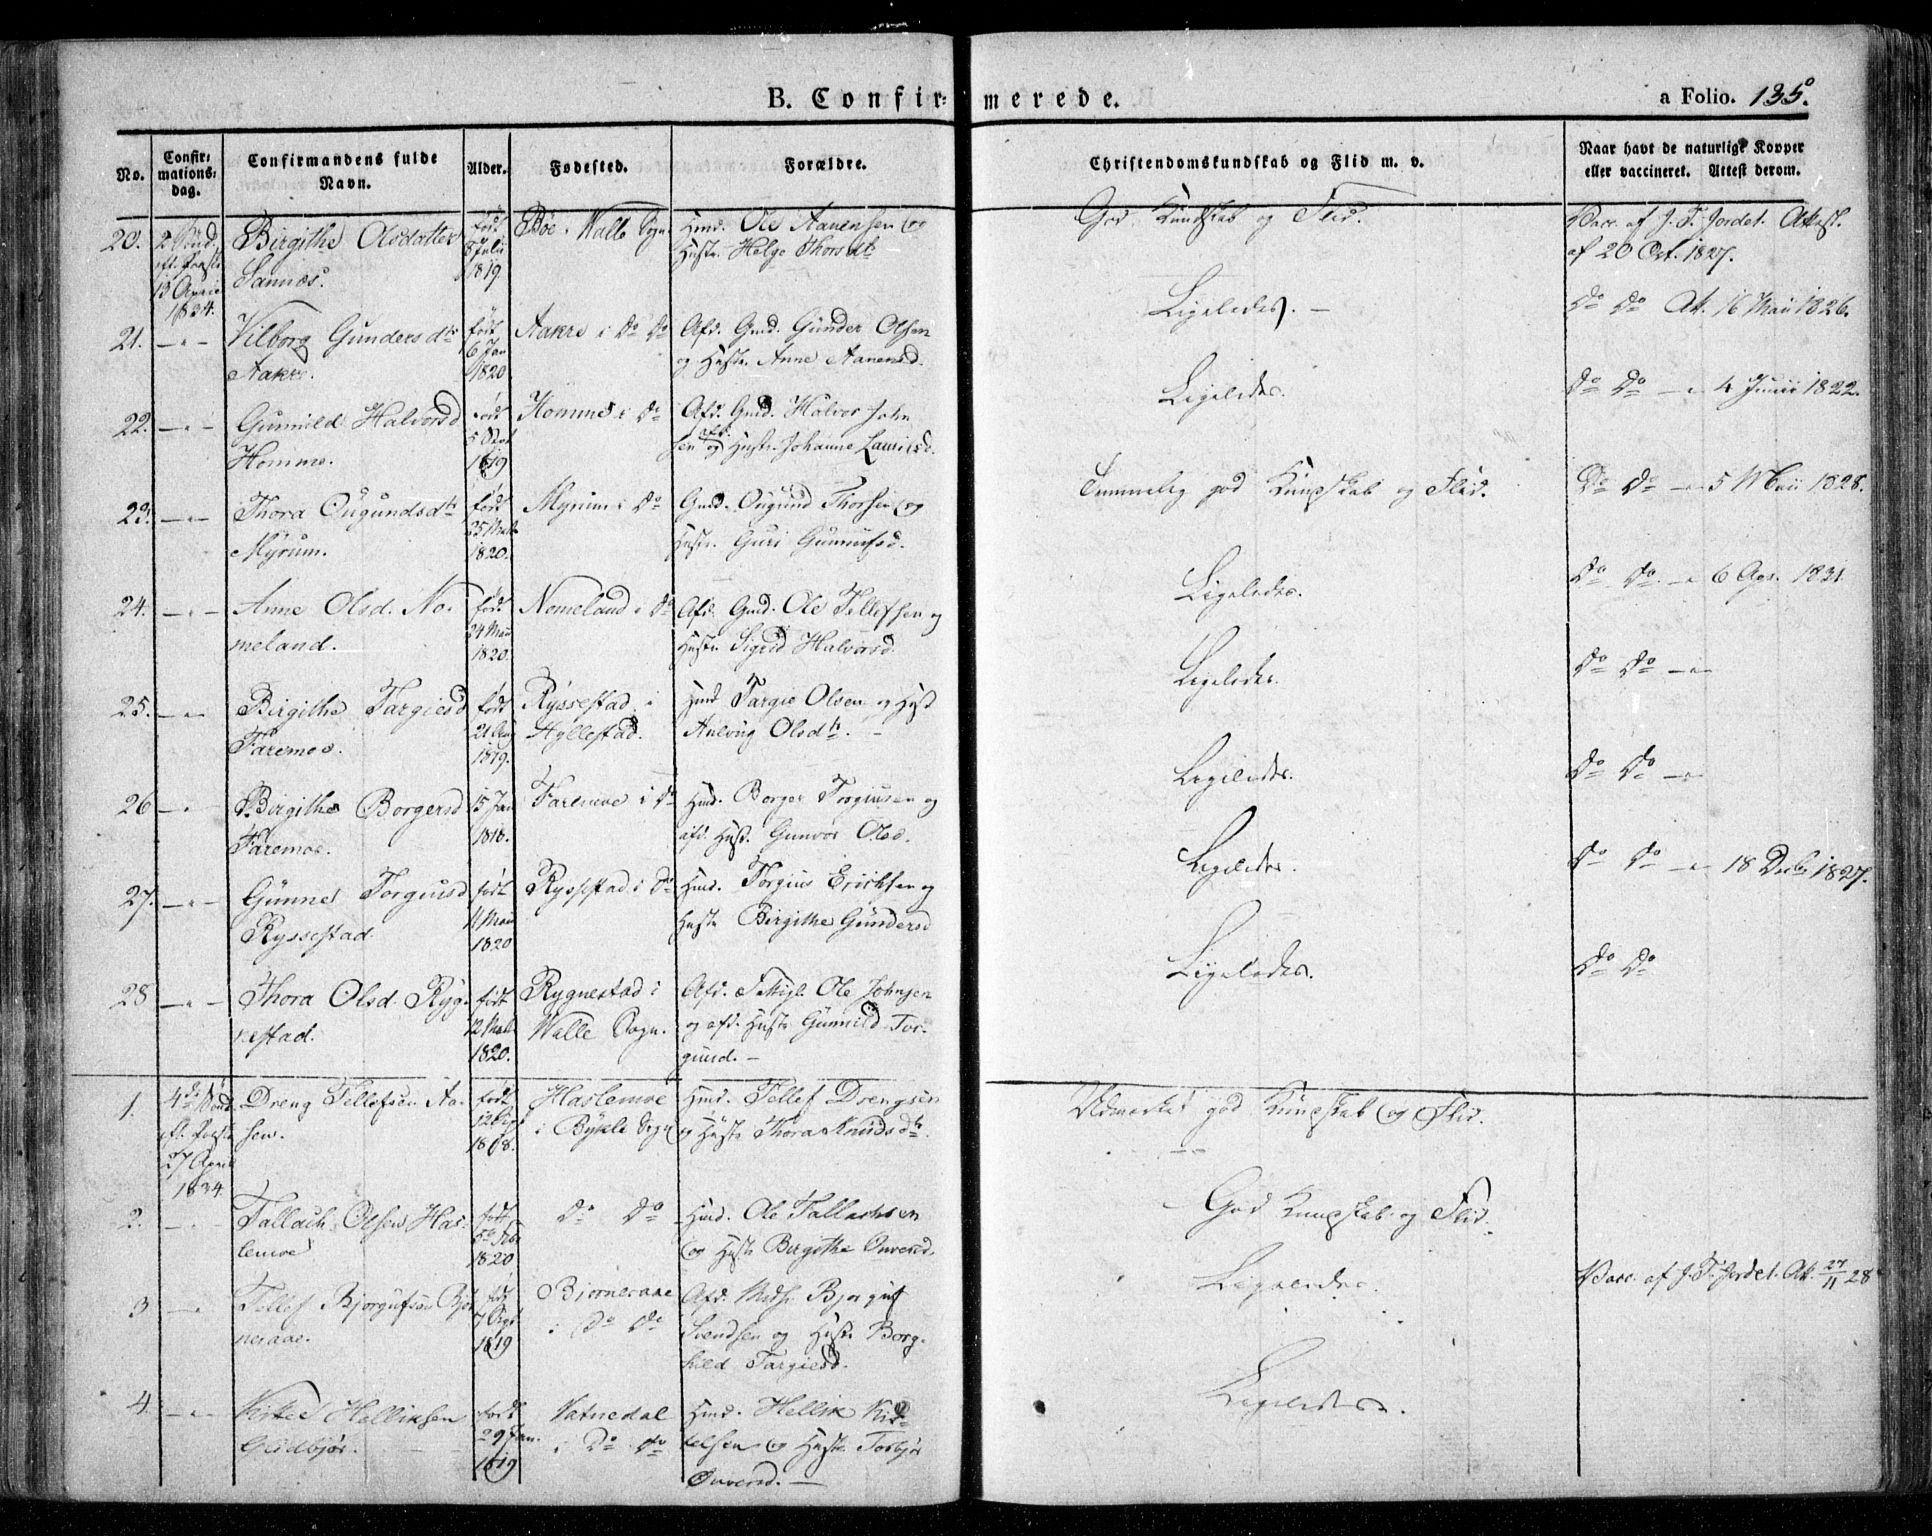 B. Confir-merede.
a Folio. 135.
No.
Confir-mations-dag.
Confirmandens fulde Navn.
Alder.
Fødested.
Forældre.
Christendomskundskab og Flid m. v.
Naar havt de naturlige Kopper eller vaccineret. Attest derom.
20. 2 Sønd. eft. Paaske 13 April 1834. Birgithe Olsdatter Sannæs. født 8 Julii 1819. Bøe. Walle Sogn Hmd. Ole Aanensen og Hustr. Helge Thorsdtr God Kundskab og Flid. Vacc. af J. T. Jordet. Attest. af 20 Oct. 1827.
21. -"- Vilborg Gundersdtr Aakre. født 6 Jan 1820. Aakre i Do Do Afd. Gmd. Gunder Olsen og Hustr. Anne Aanensd. Ligeledes. - Do Do At. 16 Mai 1826.
22. -"- Gunnild Halvorsd Homme. født 5 1819 Homme i Do Afd. Gmd. Halvor John sen og afd. Hustr. Johanne Lauritsd. Ligeledes. Do Do -"- 4 Junii 1822.
23. -"- Thora Ougundsdtr Myrum. født 25 1820. Myrum i Do Gmd. Ougund Thorsen og Hustr. Guri Gunnufsd. Temmelig god Kundskab og Flid. Do Do -"- 5 Maii 1828.
24. -"- Anne Olsd. No- meland. født 24 1820. Nomeland i Do Afd. Gmd. Ole Tellefsen og Hustr. Sigrid Halvorsd. Ligeledes. Do Do -"- 6 Ags. 1831.
25. -"- Birgithe Targiesd Faremoe. født 21 Aug 1819. Ryssestad i Hyllestad. Hmd Targie Olsen og Hust Asloug Olsdtr. - Ligeledes. Do Do -"-
26 -"- Birgithe Borgersd Faremoe. 15 Jan 1818. Faremoe i Do Hmd. Borger Torgiusen og afd. Hust. Gunvor Olsd. Ligeledes. Do Do -"-
27. -"- Gunne Torgiusd Ryssestad født 11 1820 Ryssestad i Do Hmd. Torgius Erichsen og Hustr Birgithe Gundersd Ligeledes. Do Do -"- 18 Decb 1827.
28 -"- Thora Olsd. Ryg- nestad. født 12 1820. Rygnestad i Walle Sogn. Afd. Ole Johnsen og afd. Hustr Gunnild Tor- giusd. - Ligeledes. Do Do
1. 4de Sønd eft. Paaske 27 April 1834. Dreng Tellefsen Aa- sen. født 12 1818. Haslemoe i Bykle Sogn Hmd. Tellef Drengsen og Hustr Thora Knudsdtr. Udmærket god Kundskab og Flid.
2. -"- Tallach Olsen Has- lemoe født 5 Feb 1820 Do Do Hmd. Ole Tallachsen og Hustr Birgithe Onversd. God Kundskab og Flid.
3 -"- Tellef Bjorgufsen Bjør neraae. fød 7 Sept 1819 Bjørneraae i Do Do Afd. Bjorguf Svendsen og Hustr. Borg- hild Targiesd. Ligeledes. Vacc. af J. T. Jordet. At. 27/11 28
4. -"- Kittel Hellicksen Guldbjør. født 29 Jan. 1819 Vatnedal i Do Do Hmd. Hellik Kit- telsen og Hustr Torbjør Onversd. - Ligeledes.